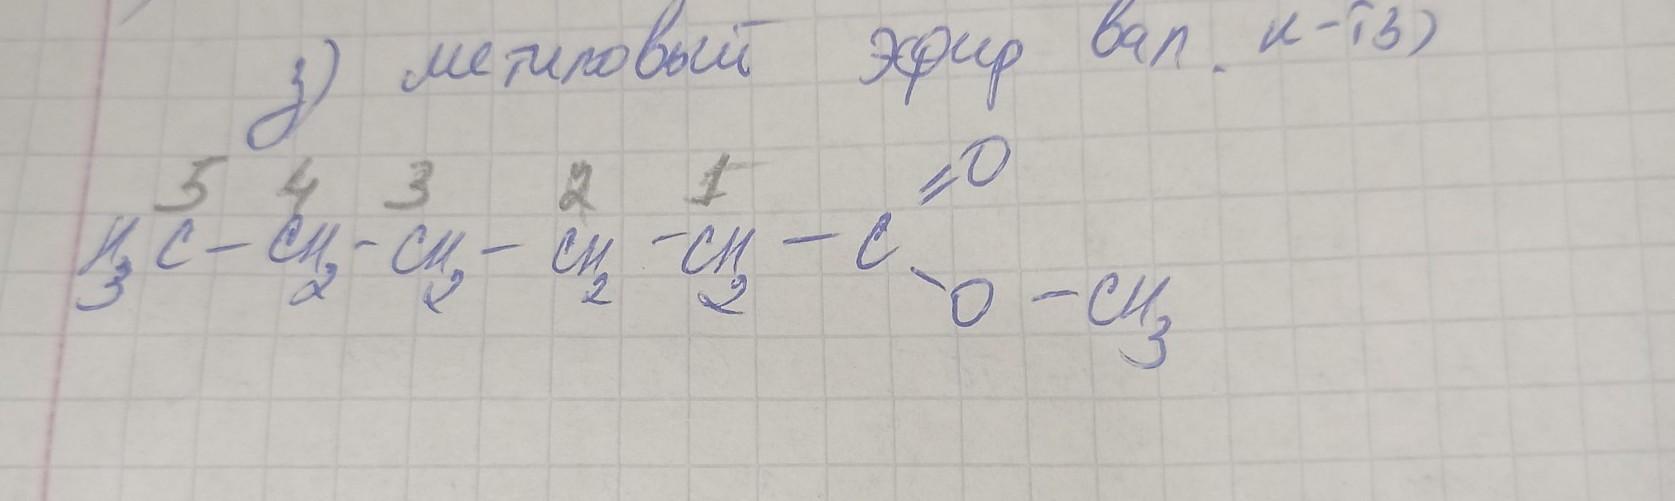 з) метиловый эфир вал. к-ты)
5 4 3 2 1 =O
H3C - CH2 - CH2 - CH2 - CH2 - C
- O - CH3